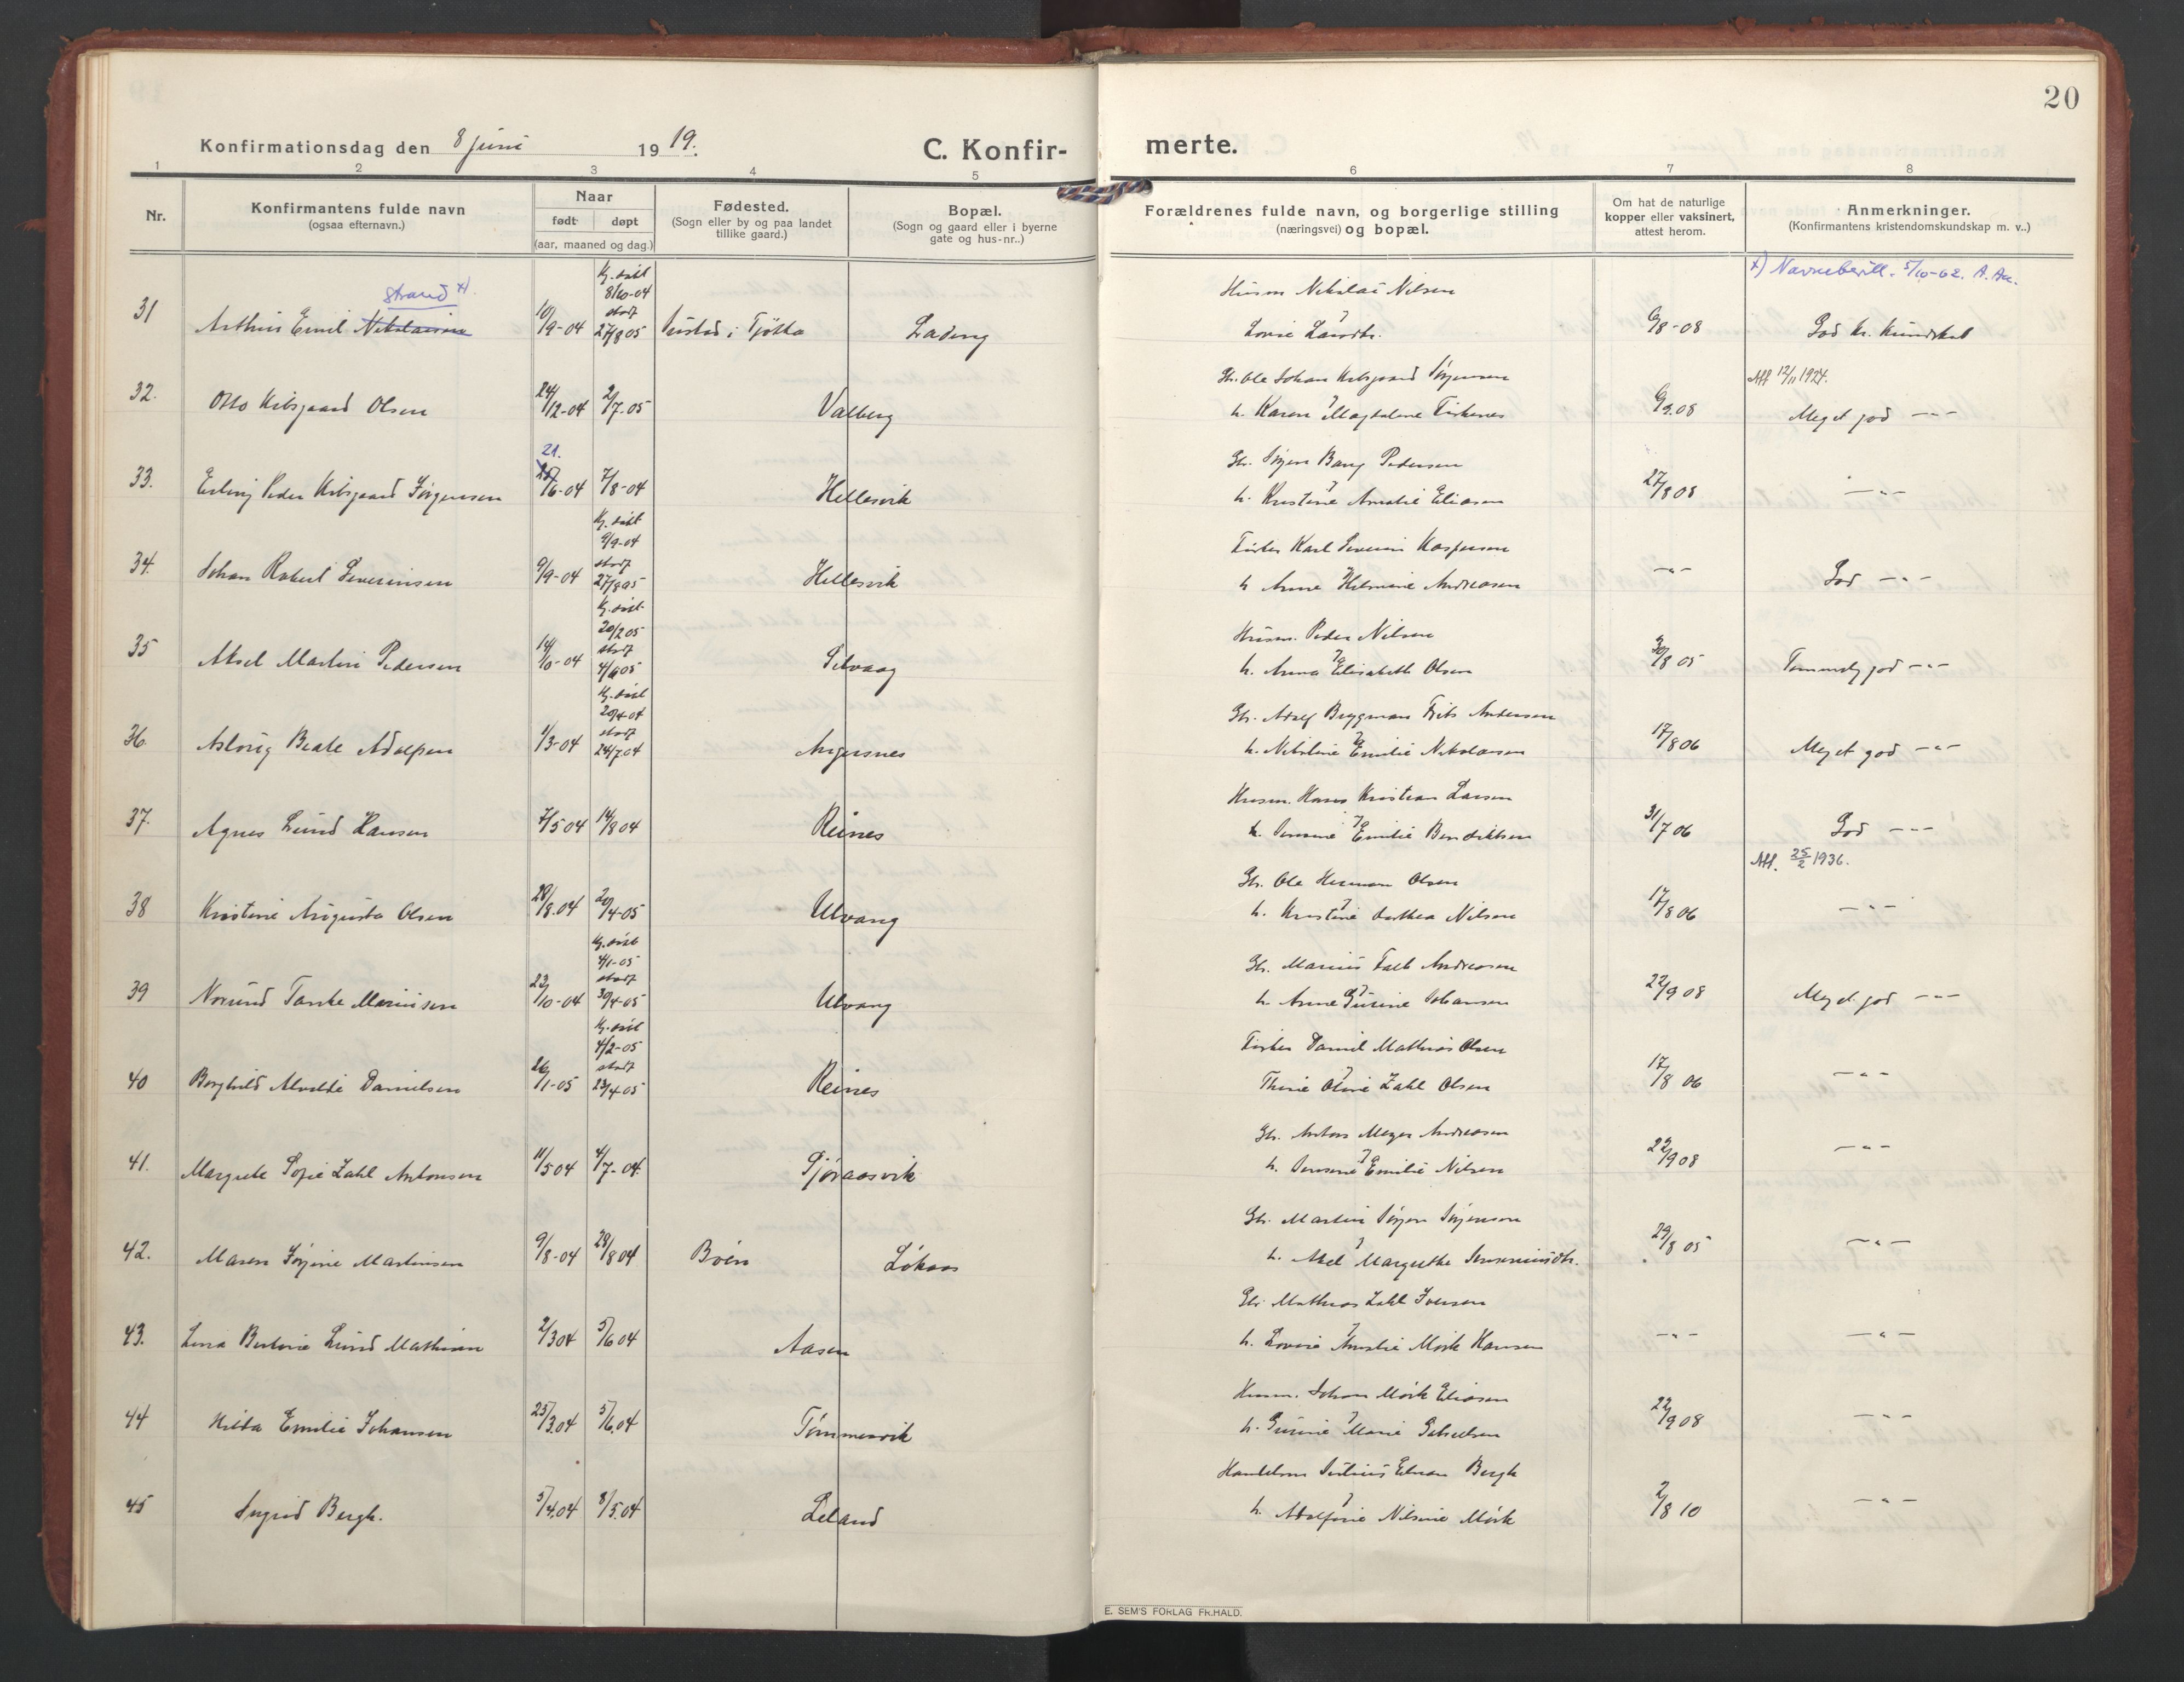 20
Konfirmationsdag den 8 juni 1919.
C. Konfir-
merte.
1 2 3 4 5 6 7 8
Nr.
Konfirmantens fulde navn
(ogsaa efternavn.)
Naar
født døpt
(aar, maaned og dag.)
Fødested.
(Sogn eller by og paa landet
tillike gaard.)
Bopæl.
(Sogn og gaard eller i byerne
gate og hus-nr..)
Forældrenes fulde navn, og borgerlige stilling
(næringsvei) og bopæl.
Om hat de naturlige
kopper eller vaksinert,
attest herom.
Anmerkninger.
(Konfirmantens kristendomskundskap m. v..)
Strand x).
x) Navnebevill. 5/10-62.
Kj. døbt
8/10-04
stadf
Husm Nikolai Nilsen
31 Arthur Emil Nikolaisen 10/9-04 27/8 05 i Tjøtta Ladeng
Lovise Larsdtr. 6/8-08 God kr. kundskab
Gbr. Ole Johan Kibsgaard Jørgensen
Att 12/11 1924.
32. Otto Kibsgaard Olsen 24/12-04 2/7-05 Valberg
h. Karen Magdalene Fiskenes 6/9.08 Meget god -"-
21.
Gbr. Jørgen Bang Pedersen
33. Erling Peder Kibsgaard Jørgensen /6-04 7/8-04 Hellesvik
h. Kristine Amalie Eliasen 27/8 08 -"-
Kj. døbt
9/9-04
stadf
Fisker Karl Severin Kaspersen
34. Johan Robert Severinsen 9/9-04 27/8 05 Hellesvik
h Anne Helmine Andreasen -"- God -"-
Kj. døbt
20/2 05
stadf
Husm. Peder Nilsen
35 Aksel Martin Pedersen 14/10-04 4/6 05 Selvaag
h. Anna Elisabeth Olsen 30/8 05 Temmelig god -"-
Kj. døbt
20/4-04
stadf
Gbr. Adolf Brygman Friis Andersen
36. Aslaug Beate Adolfsen 1/3-04 24/7 04 Angersnes
h. Nikoline Emilie Nikolaisen 17/8 06 Meget god -"-
Husm. Hans Kristian Larsen
37. Agnes Lund Hansen 7/5 04 14/8 04 Reines
h. Jensine Emilie Bendiktsen 31/7 06 God -"-
Att. 25/2 1936.
Gbr. Ole Herman Olsen
38 Kristine Augusta Olsen 28/8.04 20/4-05 Ulvang
h. Kristine Dorthea Nilsen 17/8 06 -"-
Kj. døbt
4/1-05
stadf
Gbr. Marius Falk Andreasen
39 Norund Tanke Mariusen 23/10-04 30/4-05 Ulvang
h. Anne Gurine Johansen 22/9 08 Meget god -"-
Kj. døbt
4/2-05
stadf
Fisker Daniel Mathias Olsen
40 Borghild Alvilde Danielsen 26/1-05 23/4 05 Reines
Thrine Oline Zahl Olsen 17/8 06 -"-
Gbr. Anton Meyer Andreasen
41. Margrete Sofie Zahl Antonsen 11/5 04 4/7-04 Sjøraasvik
h. Jensine Emilie Nilsen 22/9 08 -"-
Gbr. Martin Jørgen Jørgensen
42. Maren Jørgine Martinsen 9/8-04 28/8 04 Boen Løkaas
h. Abel Margrethe 29/8 05 -"-
Gbr Mathias Zahl Iversen
43. Lina Bertine Lund Mathisen 2/3 04 5/6 04 Aasen
h. Lovise Amalie Mørk Hansen -"- -"-
Husm. Johan Mørk Eliasen
44 Hilda Emilie Johansen 25/3.04 5/6.04 Tømmervik
h. Gurine Marie Gabrielsen 22/9 08 -"-
Handelsm Bergh
45 Ingrid Bergh. 5/4.04 8/5.04 Leland
h. Adolfine Nilsine Mørk 2/8 10 -"-
E. SEM'S FORLAG FR.HALD.